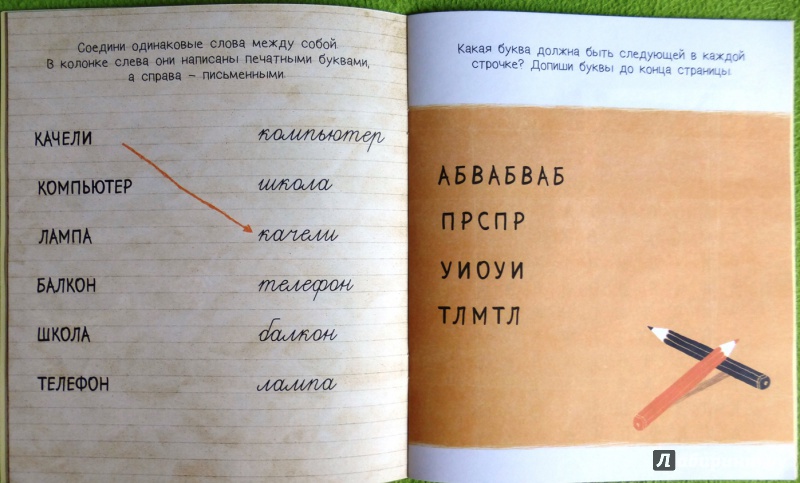 Соедини одинаковые слова между собой
В колонке слева они написаны печатными буквами,
а справа – письменными.
КАЧЕЛИ компьютер
КОМПЬЮТЕР школа
ЛАМПА качели
БАЛКОН телефон
ШКОЛА балкон
ТЕЛЕФОН лампа
Какая буква должна быть следующей в каждой
строчке? Допиши буквы до конца страницы.
АБВАБВАБ
ПРСПР
УИОУИ
ТЛМТЛ
Л Лабиринт.ру